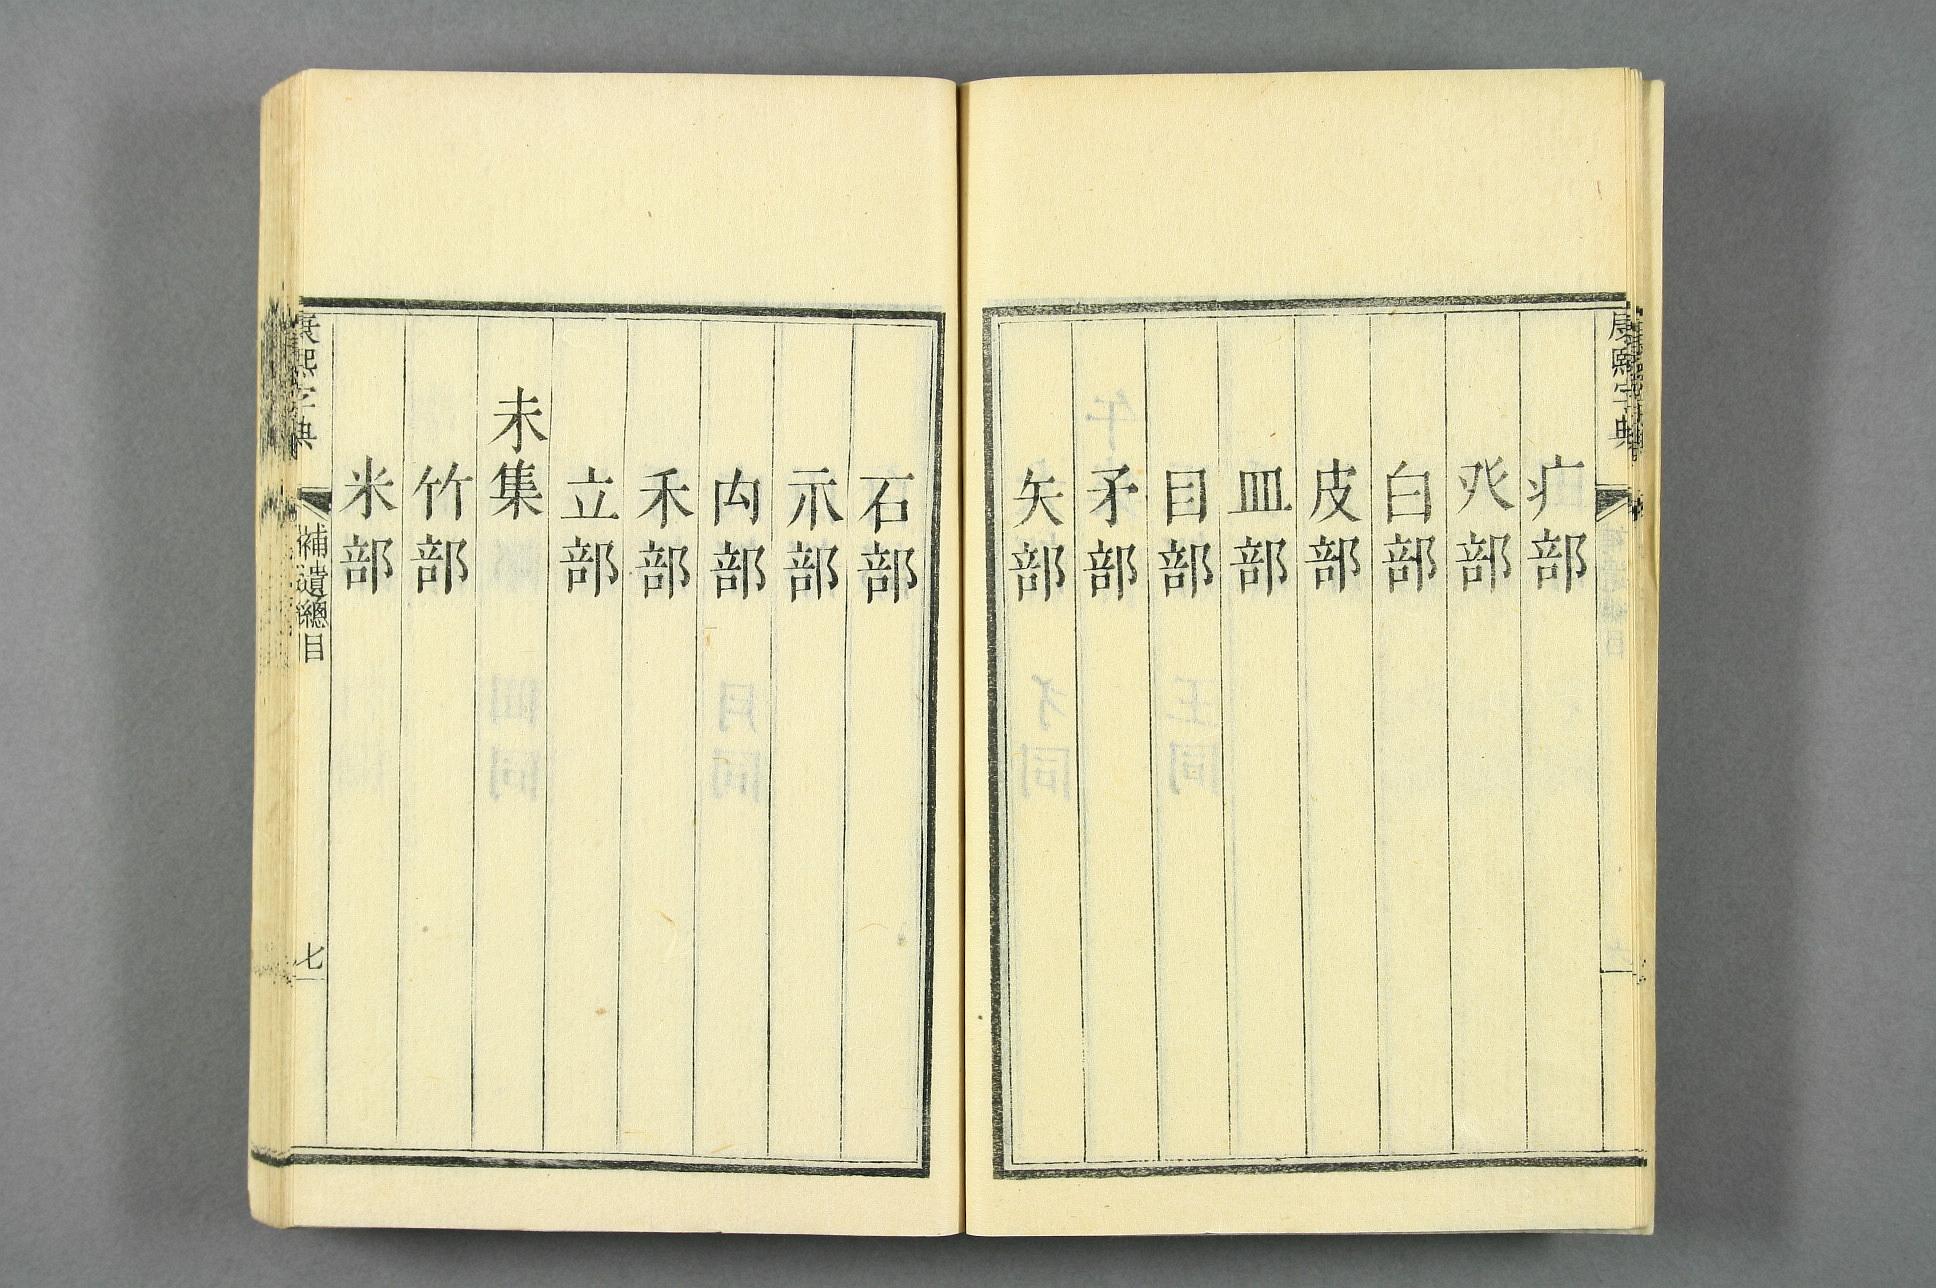 康熙字典
疒部
癶部
白部
皮部
皿部
目部
矛部
矢部
石部
示部
禸部
禾部
立部
未集
竹部
米部
康熙字典
補遺總目
七